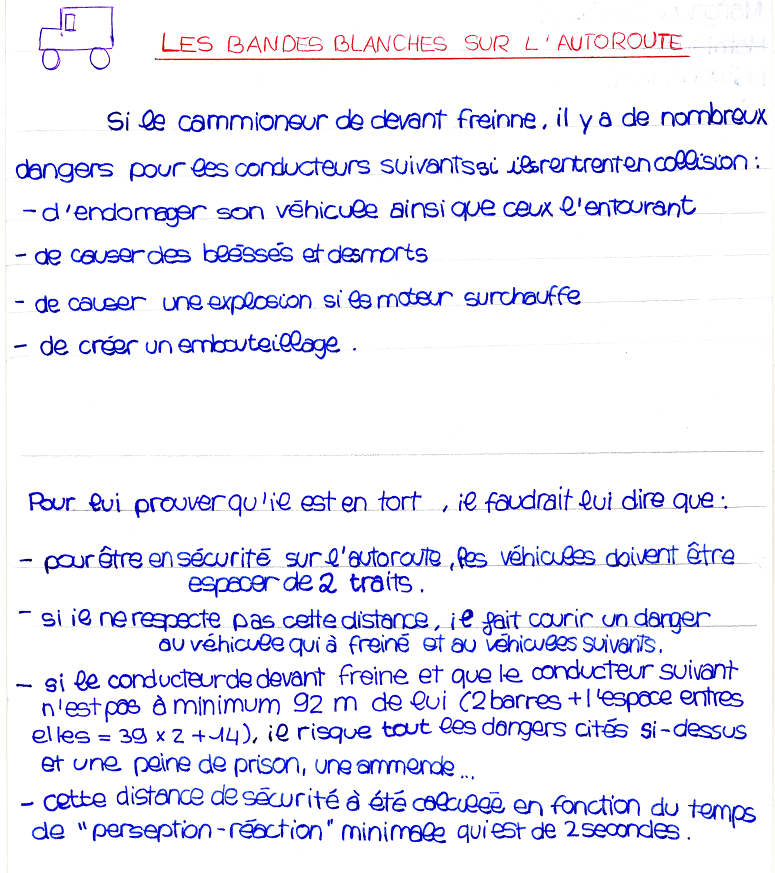 LES BANDES BLANCHES SUR L'AUTOROUTE
Si le cammioneur de devant freinne, il y a de nombreux
dangers pour les conducteurs suivants si ils rentrent en collision :
- d'endomager son véhicule ainsi que ceux l'entourant
- de causer des bléssés et des morts
- de causer une explosion si le moteur surchauffe
- de créer un embouteillage .
Pour lui prouver qu'il est en tort , il faudrait lui dire que :
- pour être en sécurité sur l'autoroute, les véhicules doivent être
espacer de 2 traits .
- si il ne respecte pas cette distance, il fait courir un danger
au véhicule qui à freiné et au véhicules suivants.
- si le conducteur de devant freine et que le conducteur suivant
n'est pas à minimum 92 m de lui (2 barres + l'espace entres
elles = 39 x 2 + 14), il risque tout les dangers cités si-dessus
et une peine de prison, une ammende...
- cette distance de sécurité à été calculée en fonction du temps
de "perseption-réaction" minimale qui est de 2 secondes .